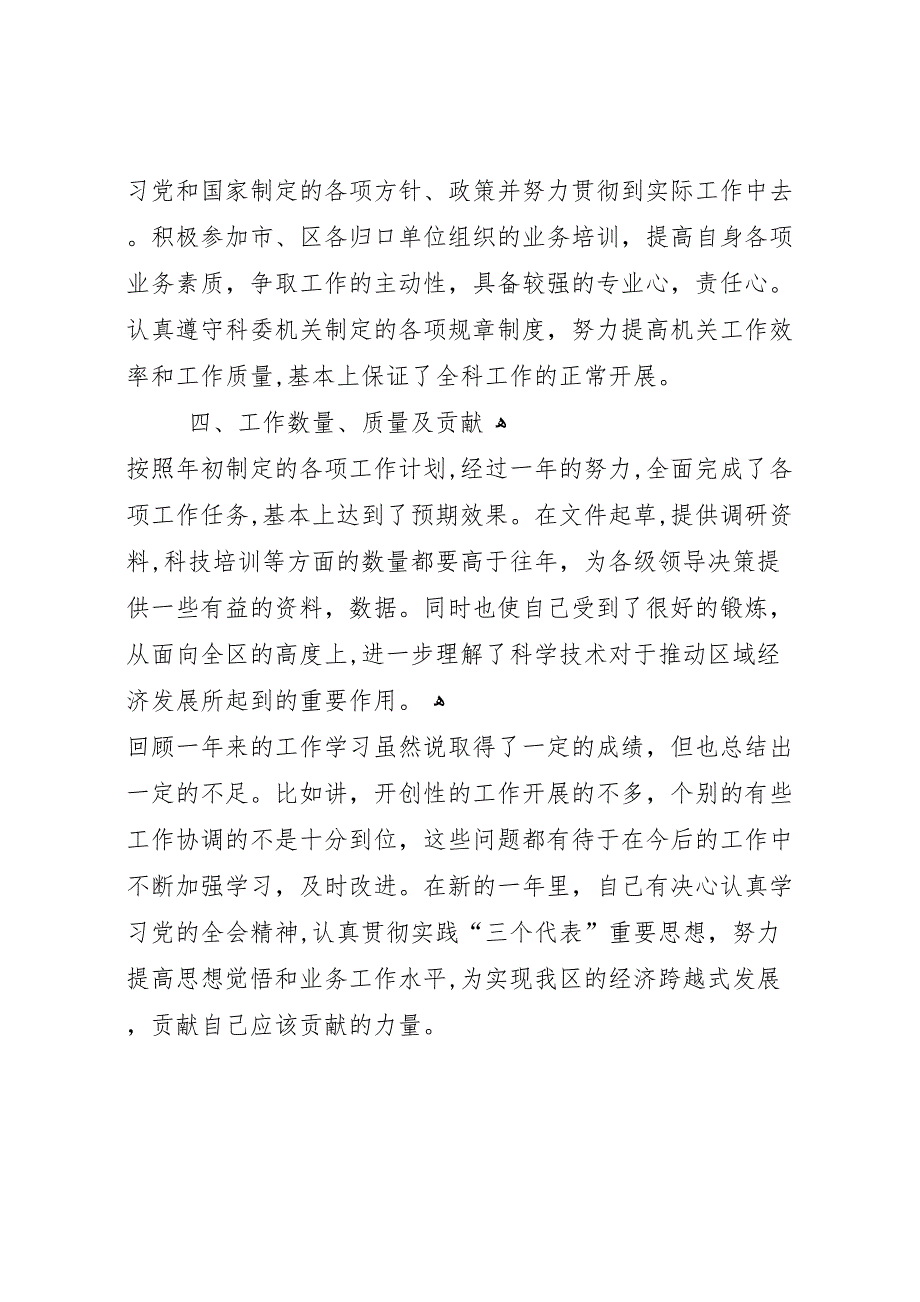 习党和国家制定的各项方针、政策并努力贯彻到实际工作中去
。积极参加市、区各归口单位组织的业务培训，提高自身各项
业务素质，争取工作的主动性，具备较强的专业心，责任心。
认真遵守科委机关制定的各项规章制度，努力提高机关工作效
率和工作质量,基本上保证了全科工作的正常开展。
四、工作数量、质量及贡献 ﻫ
按照年初制定的各项工作计划,经过一年的努力,全面完成了各
项工作任务,基本上达到了预期效果。在文件起草,提供调研资
料,科技培训等方面的数量都要高于往年，为各级领导决策提
供一些有益的资料，数据。同时也使自己受到了很好的锻炼，
从面向全区的高度上,进一步理解了科学技术对于推动区域经
济发展所起到的重要作用。 ﻫ
回顾一年来的工作学习虽然说取得了一定的成绩，但也总结出
一定的不足。比如讲，开创性的工作开展的不多，个别的有些
工作协调的不是十分到位，这些问题都有待于在今后的工作中
不断加强学习，及时改进。在新的一年里，自己有决心认真学
习党的全会精神,认真贯彻实践“三个代表”重要思想，努力
提高思想觉悟和业务工作水平,为实现我区的经济跨越式发展
，贡献自己应该贡献的力量。